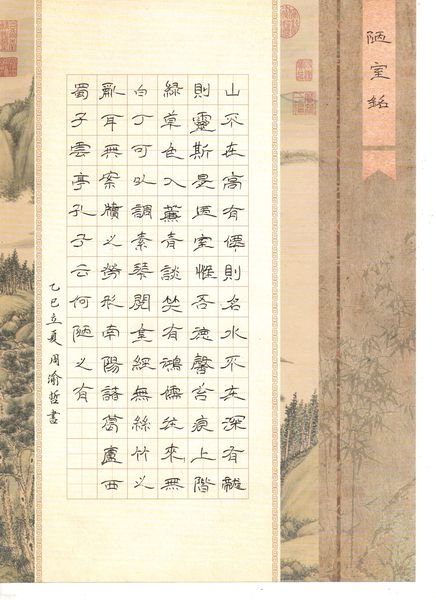 陋室銘
山不在高有僊則名水不在深有龍
則靈斯是陋室惟吾德馨苔痕上階
綠草色入簾青談笑有鴻儒往來無
白丁可以調素琴閱金經無絲竹之
亂耳無案牘之勞形南陽諸葛廬西
蜀子雲亭孔子云何陋之有
乙巳立夏周渝哲書